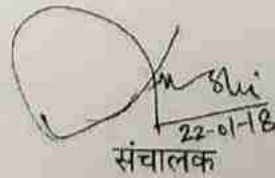 22-01-18
संचालक